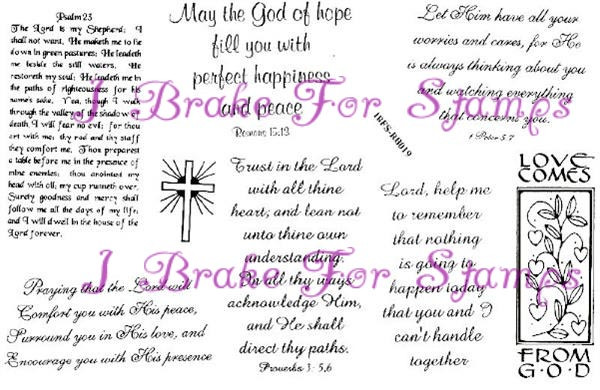 Psalm 23
The Lord is my Shepherd; I
shall not want. He maketh me to lie
down in green pastures: He leadeth
me beside the still waters. He
restoreth my soul: He leadeth me in
the paths of righteousness for his
name's sake. Yea, though I walk
through the valley of the shadow of
death, I will fear no evil: for thou
art with me; thy rod and thy staff
they comfort me. Thou preparest
a table before me in the presence of
mine enemies: thou anointed my
head with oil; my cup runneth over.
Surety goodness and mercy shall
follow me all the days of my life;
and I will dwell in the house of the
Lord forever.
May the God of hope
fill you with
perfect happiness
and peace
Romans 15:13
Let Him have all your
worries and cares, for He
is always thinking about you
and watching everything
that concerns you.
1 Peter 5:7
I Brake For Stamps
IBFS-RB019
Trust in the Lord
with all thine
heart; and lean not
unto thine own
understanding.
In all thy ways
acknowledge Him,
and He shall
direct thy paths.
Proverbs 3:5,6
Lord, help me
to remember
that nothing
is going to
happen today
that you and I
can't handle
together
LOVE
COMES
FROM
G·O·D
I Brake For Stamps
Praying that the Lord will
Comfort you with His peace,
Surround you in His love, and
Encourage you with His presence